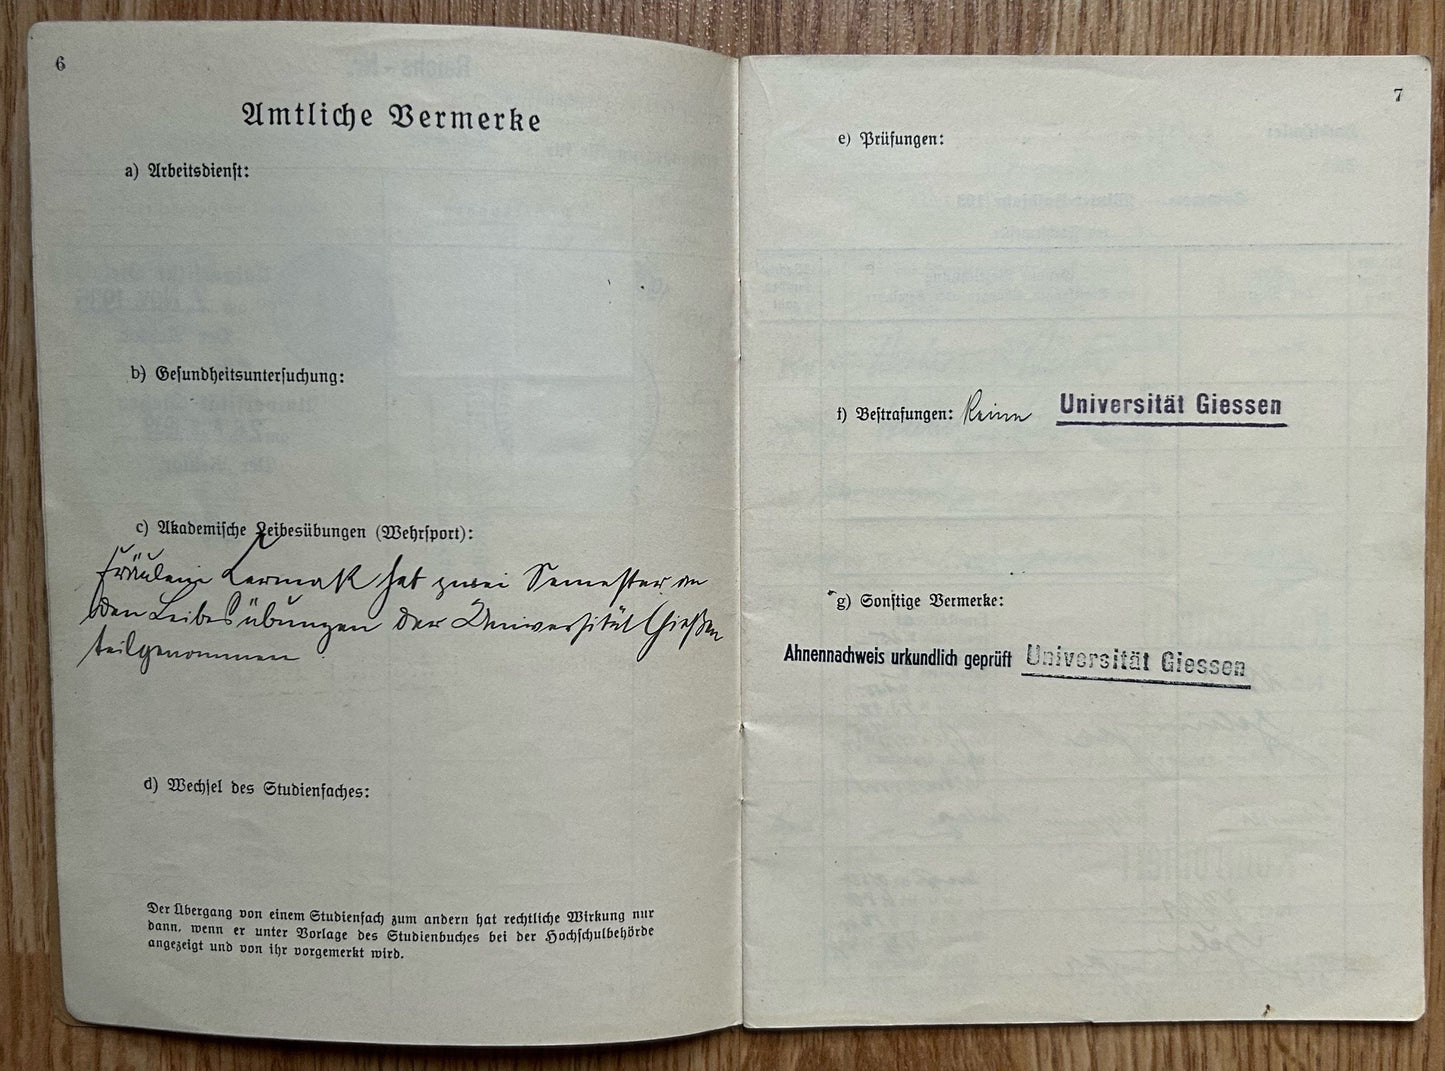 6
Amtliche Vermerke
a) Arbeitsdienst:
b) Gesundheitsuntersuchung:
c) Akademische Leibesübungen (Wehrsport):
Fräulein Lermak hat zwei Semester an
den Leibesübungen der Universität Gießen
teilgenommen
d) Wechsel des Studienfaches:
Der Übergang von einem Studienfach zum andern hat rechtliche Wirkung nur
dann, wenn er unter Vorlage des Studienbuches bei der Hochschulbehörde
angezeigt und von ihr vorgemerkt wird.
7
e) Prüfungen:
f) Bestrafungen: Keine Universität Giessen
g) Sonstige Vermerke:
Ahnennachweis urkundlich geprüft Universität Giessen